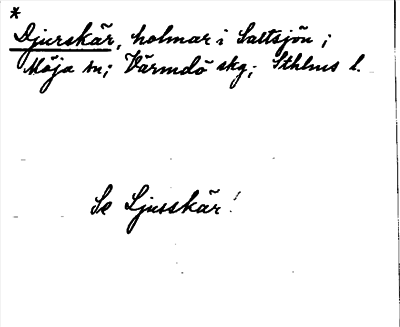 *
Djurskär, holmar i Saltsjön;
Möja sn; Värmdö skg; Sthlms l.
Se Ljusskär!